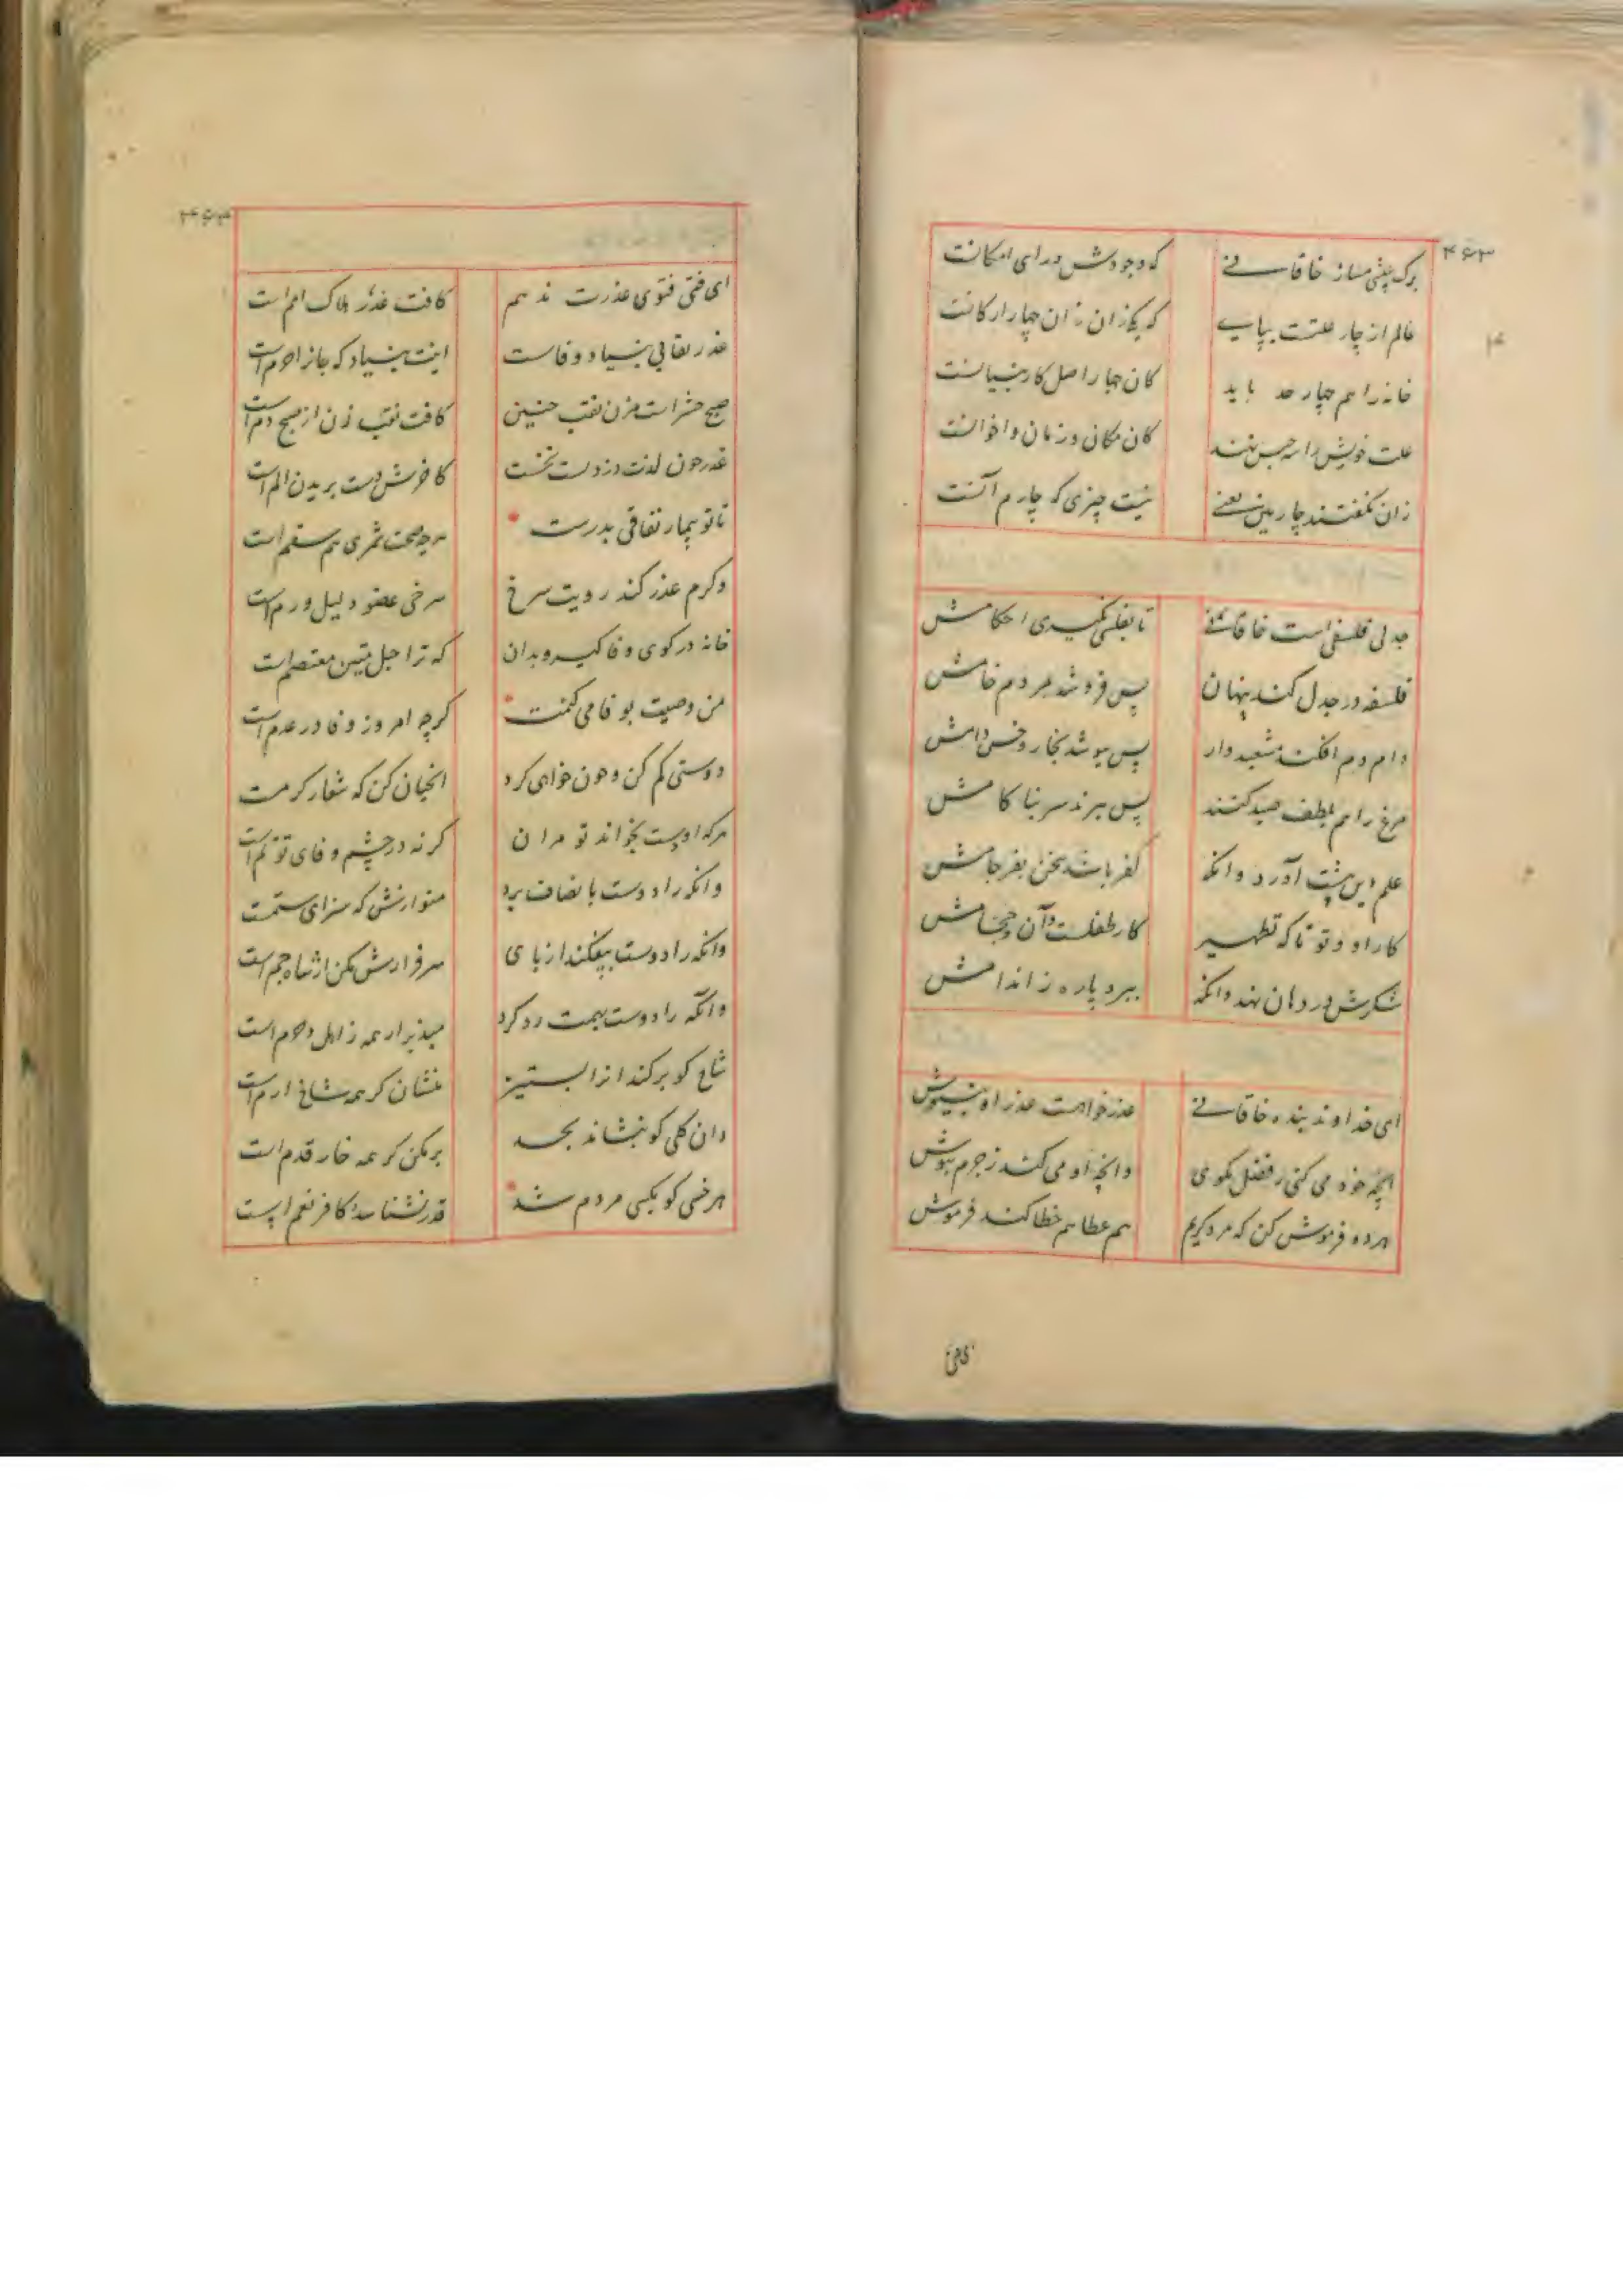 ۴۶۳
برک بیشی مساز خاقانی که وجودش ورای امکانست
عالم از چار علتست بپای که یکی زان زان چهار ارکانست
خانه را هم چهار حد باید کان چهار اصل کار بنیانست
علت خویش را سه جنس نهند کان مکان و زمان و اخوانست
زان نگفتند چارمین یعنی نیست چیزی که چارم آنست
جدلی فلسفی است خاقانی تا بفلسی نگیری احکامش
فلسفه در جدل کند پنهان پس فروشد مردم خامش
دام دم افکند مشعبدوار پس بپوشد بخار و خس دامش
مرغ را هم بلطف صید کنند پس ببرند سر بناکامش
علم دین پیشت آورد وانکه کفر باشد سخن بفرجامش
کار او و تو تا که تطهیر کار طفلست وآن حجامش
شکرش در دهان نهد وانکه ببرد پاره ز اندامش
ای خداوند بنده خاقانی عذرخواهست عذر او بنیوش
آنچه خود می کنی ز فضل مکوی وانچه او می کند ز جرم بپوش
هر ده فرموش کن که مرد کریم هم عطا هم خطا کند فرموش
ای فتی
۴۶۴
ای فتی فتوی غدرت ندهم کافت غدر هلاک امم است
غدر بقا بی بنیاد وفاست اینت بنیاد که جانرا حرم است
صبح حشر است مزن نقب چنین کافت نقب زن از صبح دم است
غدر چون لذت دزدیست نخست کاخرش دست بریدن الم است
تا تو بیمار نفاقی بدرست هر چه صحت شمری هم سقم است
وکرم عذر کند رویت سرخ سرخی عضو دلیل ورم است
خانه در کوی وفا گیر و بدان که ترا حبل متین معتصم است
من وصیت بوفا می کنمت کرچه امروز وفا در عدم است
دوستی کم کن و چون خواهی کرد آنچنان کن که شعار کرمست
هرکه او دوست بخواند تو مران کرنه در چشم وفای تو نم است
وانکه را دوست بانصاف برد منوازش که سزای ستمست
وانکه را دوست بیفکند از پای سرفرازش مکن ار شاه جم است
وانکه را دوست بتهمت رد کرد مپذیر ار همه ز اهل حرم است
شاخ کو برکند آنرا بستیز منشان کر همه شاخ ارم است
وان کلی کو بنشاند بحسد برمکن کر همه خار قدم است
هر خسی کو بکسی مردم شد قدر نشناسد کافر نعم است